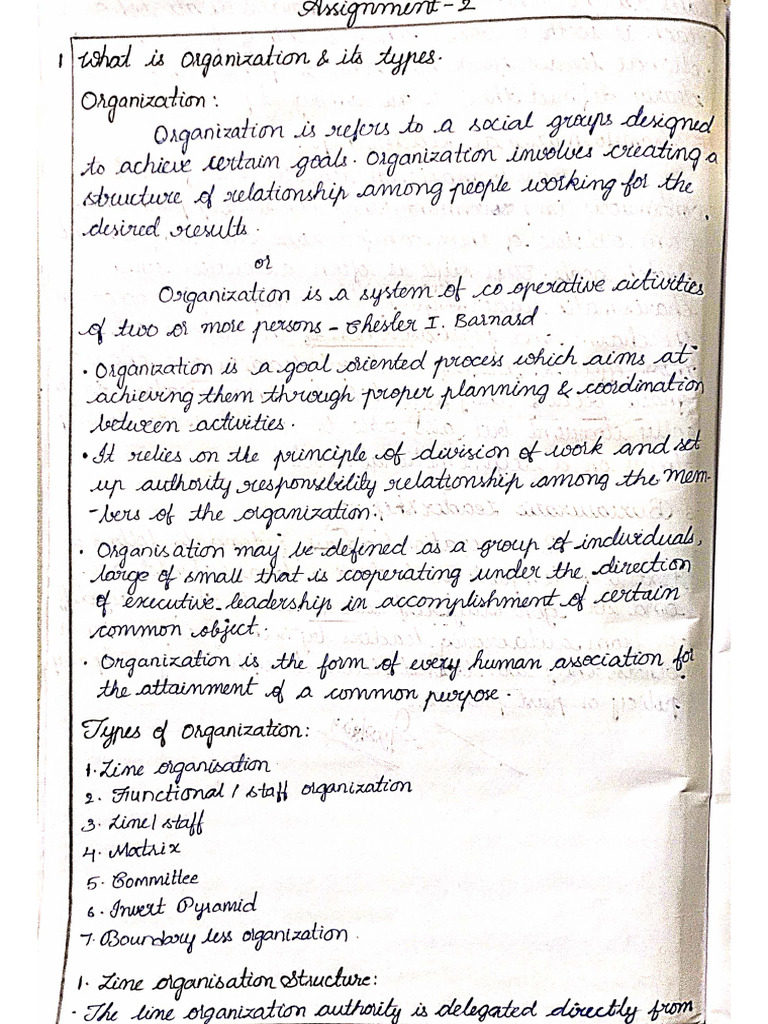 Assignment-2
1 What is Organization & its types.
Organization:
Organization is refers to a social groups designed
to achieve certain goals. Organization involves creating a
structure of relationship among people working for the
desired results.
or
Organization is a system of co operative activities
of two or more persons - Chesler I. Barnard
• Organization is a goal oriented process which aims at
achieving them through proper planning & coordination
between activities.
• It relies on the principle of division of work and set
up authority responsibility relationship among the mem-
-bers of the organization.
• Organisation may be defined as a group of individuals,
large of small that is cooperating under the direction
of executive leadership in accomplishment of certain
common object.
• Organization is the form of every human association for
the attainment of a common purpose.
Types of Organization:
1. Line organisation
2. Functional / staff organization
3. Line / staff
4. Matrix
5. Committee
6. Invert Pyramid
7. Boundary less organization.
1. Line organisation Structure:
• The line organization authority is delegated directly from